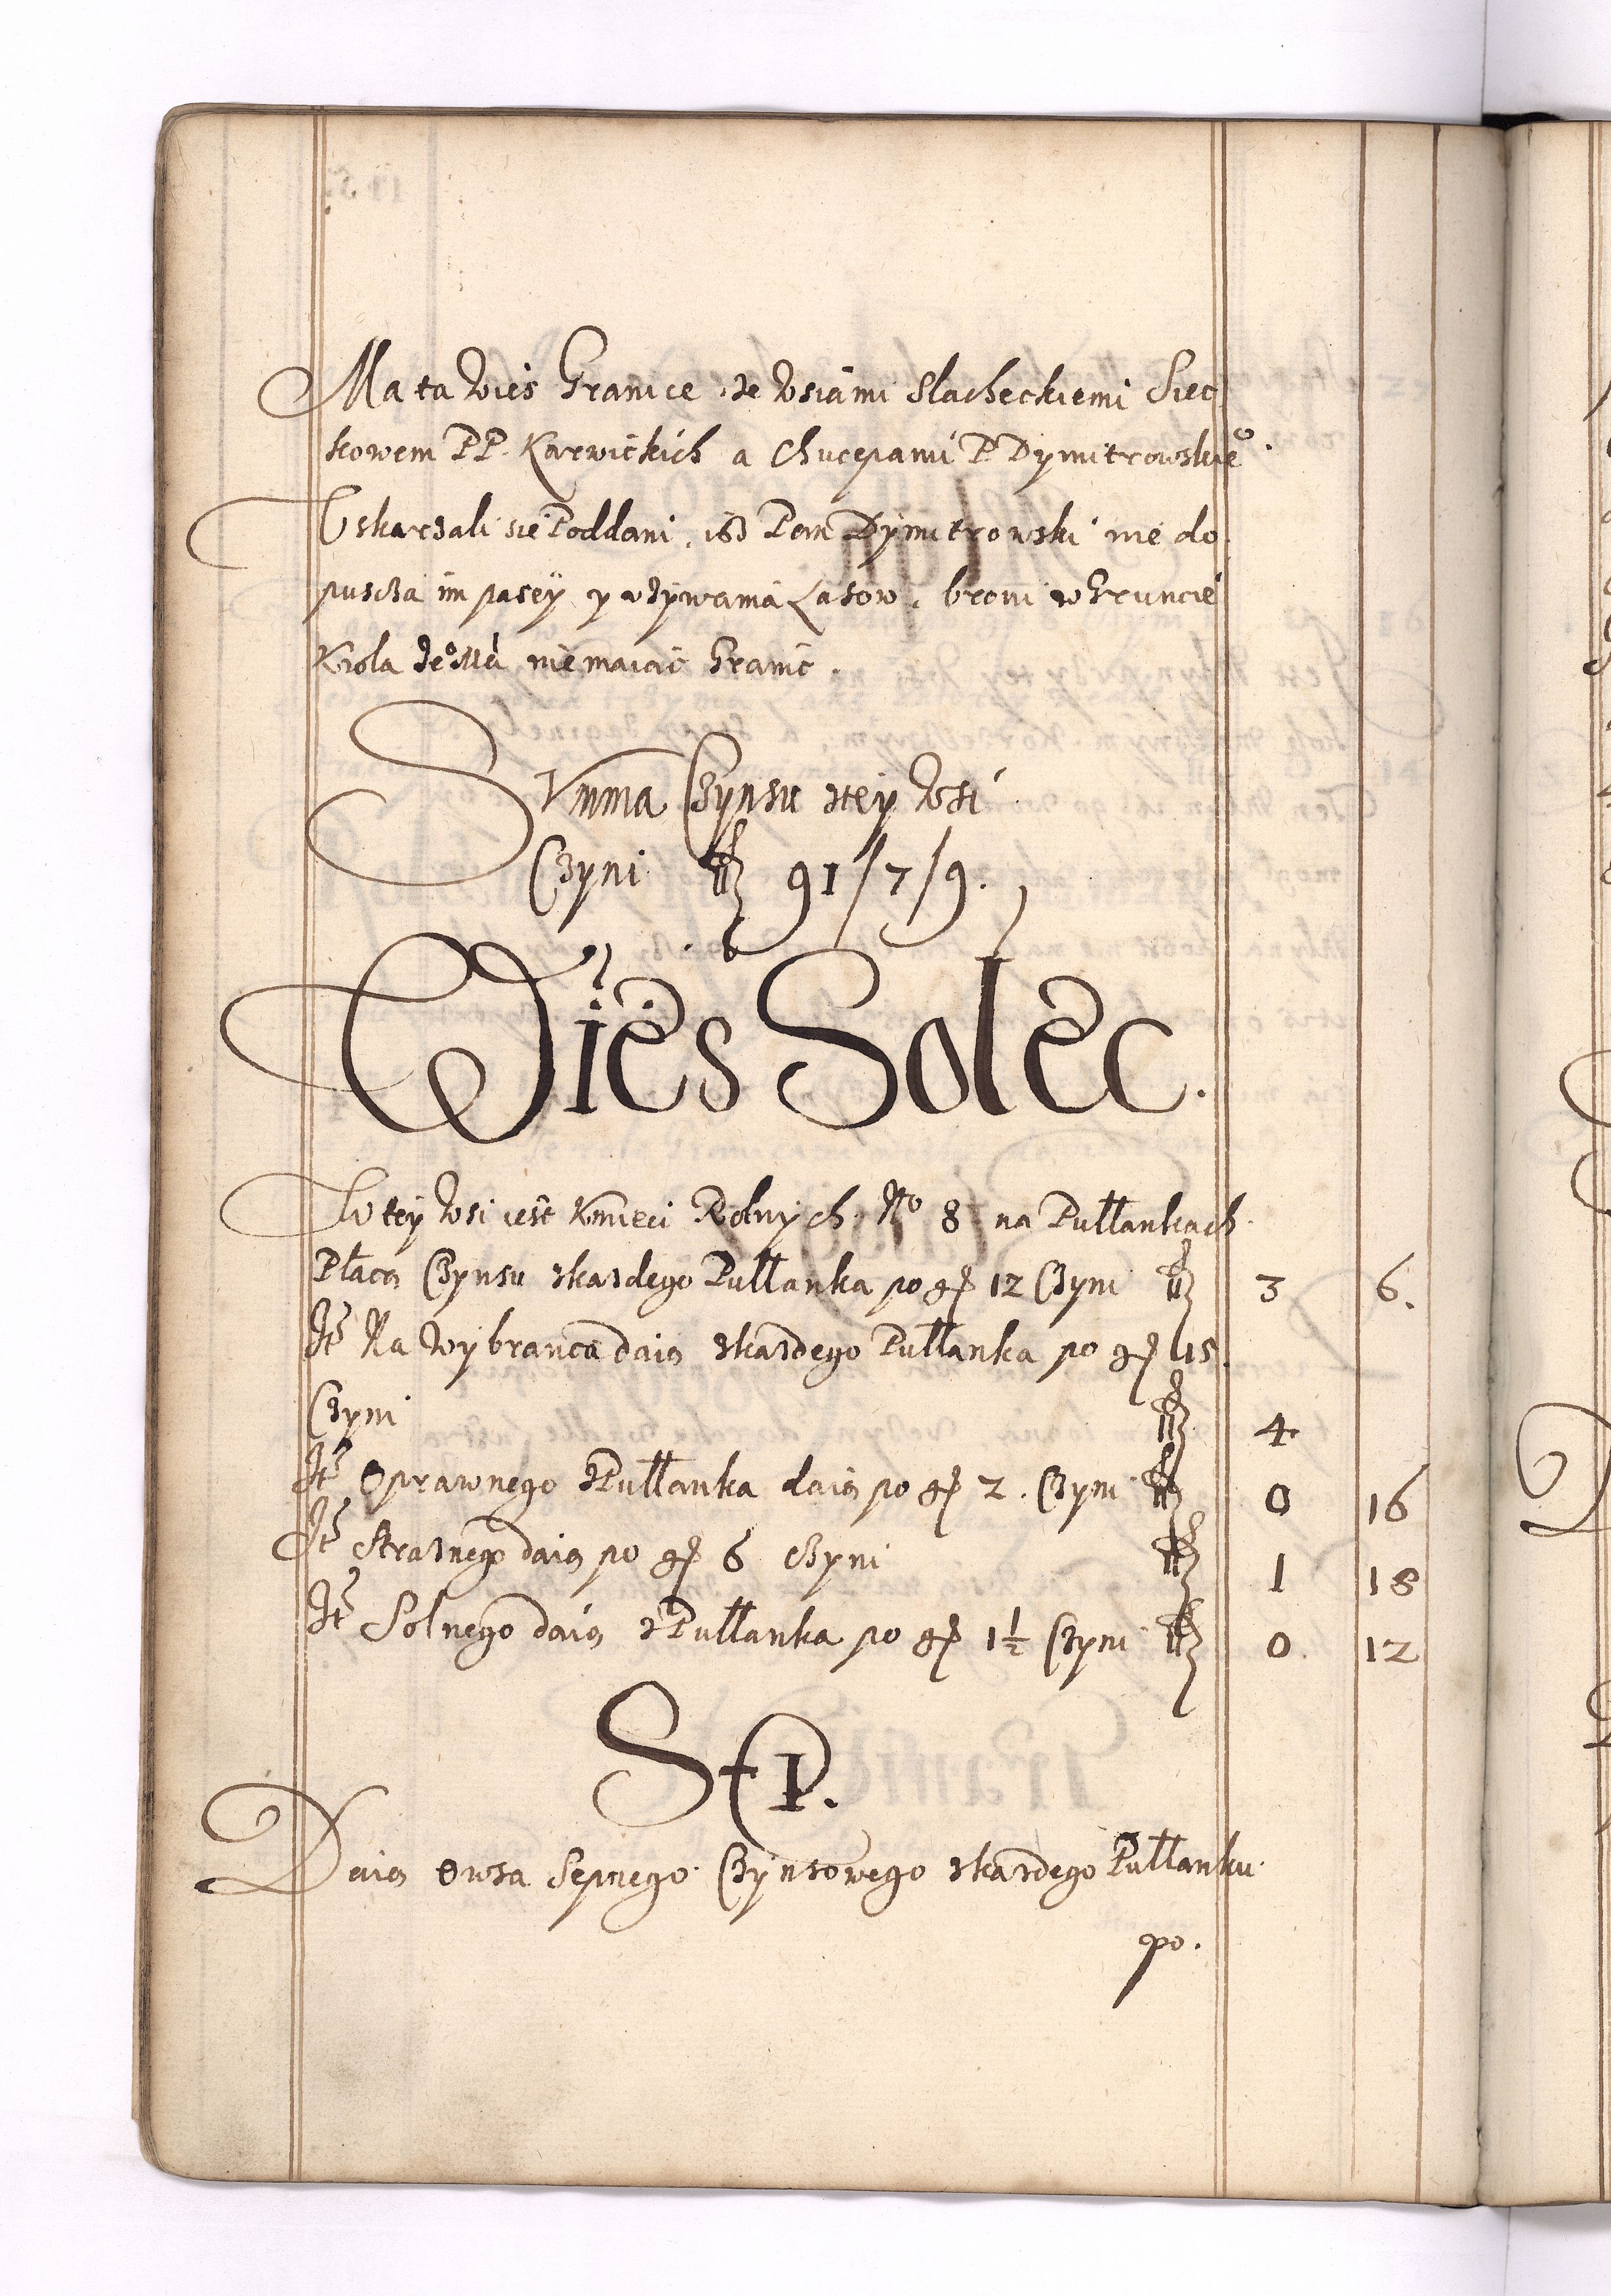 Ma ta Wieś Granice ze Wsiami Slacheckiemi Siec
kowem PP. Karwickich a Chucepami P Dymitrowskie⁰.
Uskarzali sie Poddani, isz Pan Dymitrowski nie do
puscza im pasey y vżywania Lasow, broni w Gruncie
Krola Je⁰ Mci niemaiąc Granic.
Summa Czynsu ztey Wsi
Czyni fl 91/7/9.
Wieś Solec.
W tey Wsi iest Kmieci Rolnych N⁰ 8 na Pułłankach.
Płacą Czynsu zkazdego Pułłanka po gr 12 Czyni fl 3 6.
Itē Na Wybranca daią zkazdego Pułłanka po gr 15.
Czyni fl 4.
Itē Oprawnego zPułłanka daią po gr 2. Czyni fl 0 16
Itē Straznego daią po gr 6 Czyni fl 1 18
Itē Solnego daią zPułłanka po gr 1½ Czyni fl 0. 12
SEP.
Daią Owsa Sepnego Czynsowego zkazdego Pułłanku.
po.